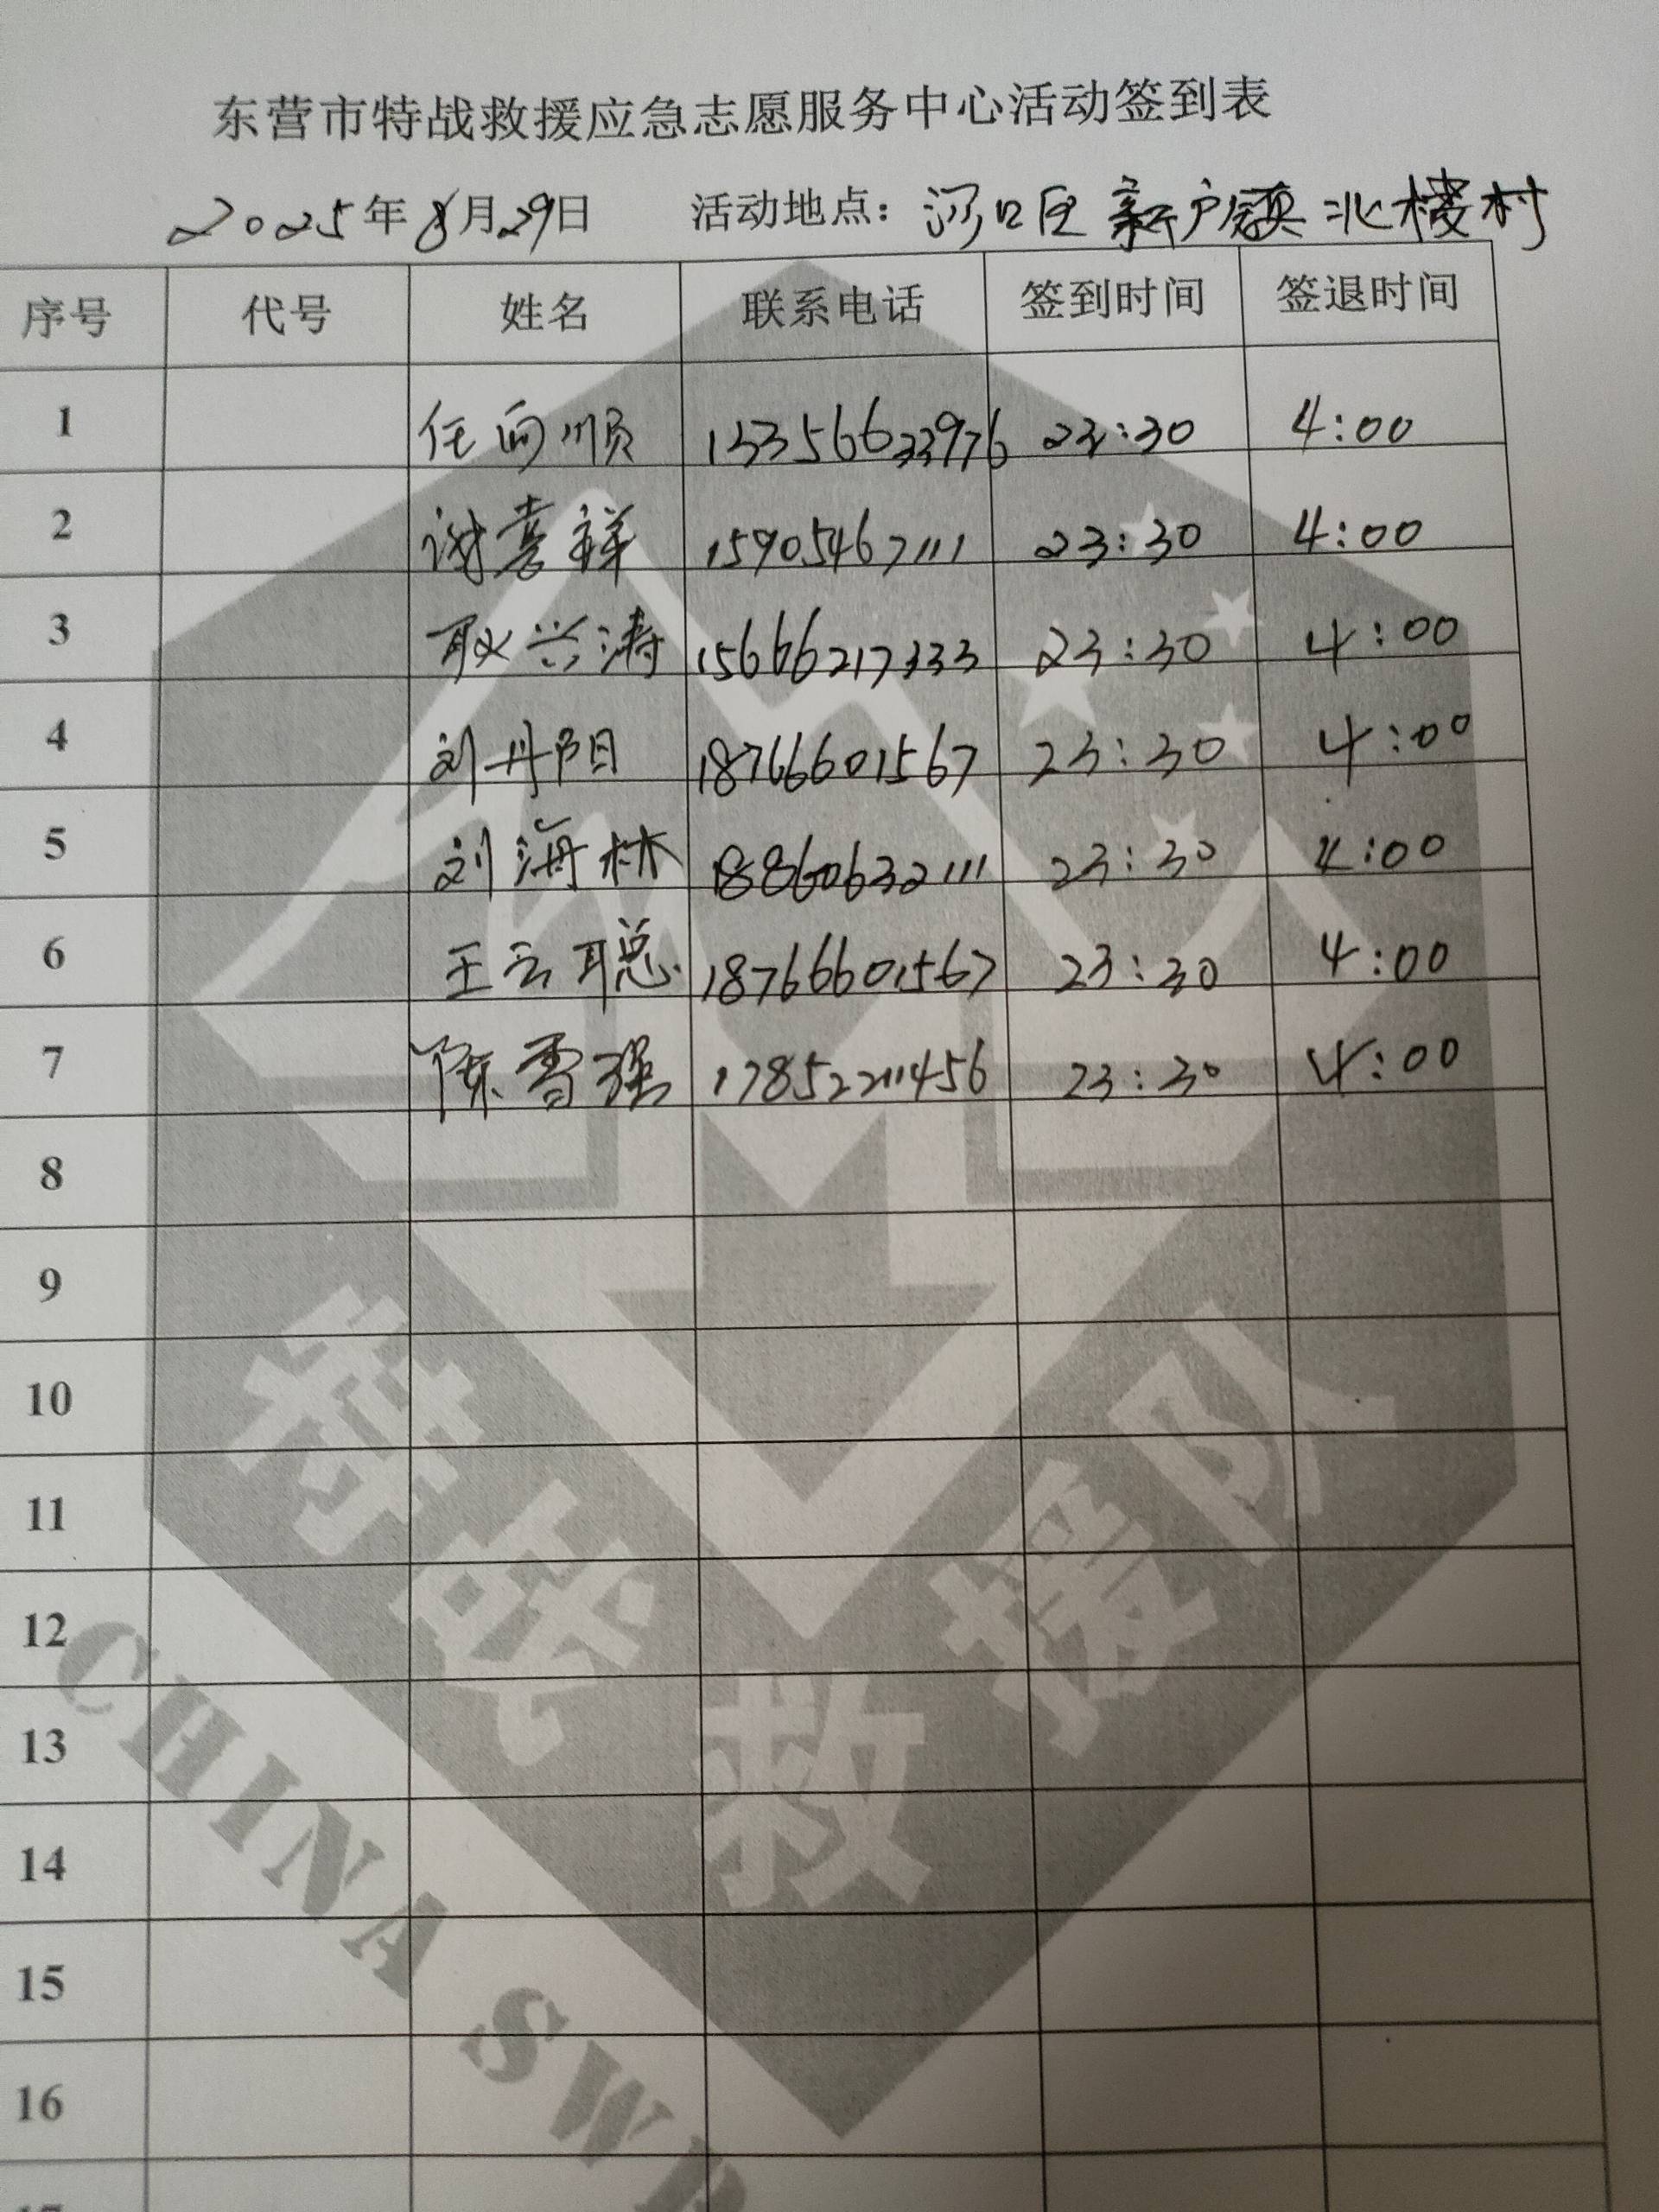 东营市特战救援应急志愿服务中心活动签到表
2025年8月29日 活动地点：河口区新户镇北楼村
序号 代号 姓名 联系电话 签到时间 签退时间
1 任向顺 13356633976 23:30 4:00
2 谢喜祥 15905467111 23:30 4:00
3 耿兴涛 15666217333 23:30 4:00
4 刘丹阳 18766601567 23:30 4:00
5 刘海林 18860632111 23:30 4:00
6 王云聪 18766601567 23:30 4:00
7 陈雪强 17852211456 23:30 4:00
8
9
10
11
12
13
14
15
16
特战救援队
CHINA SW